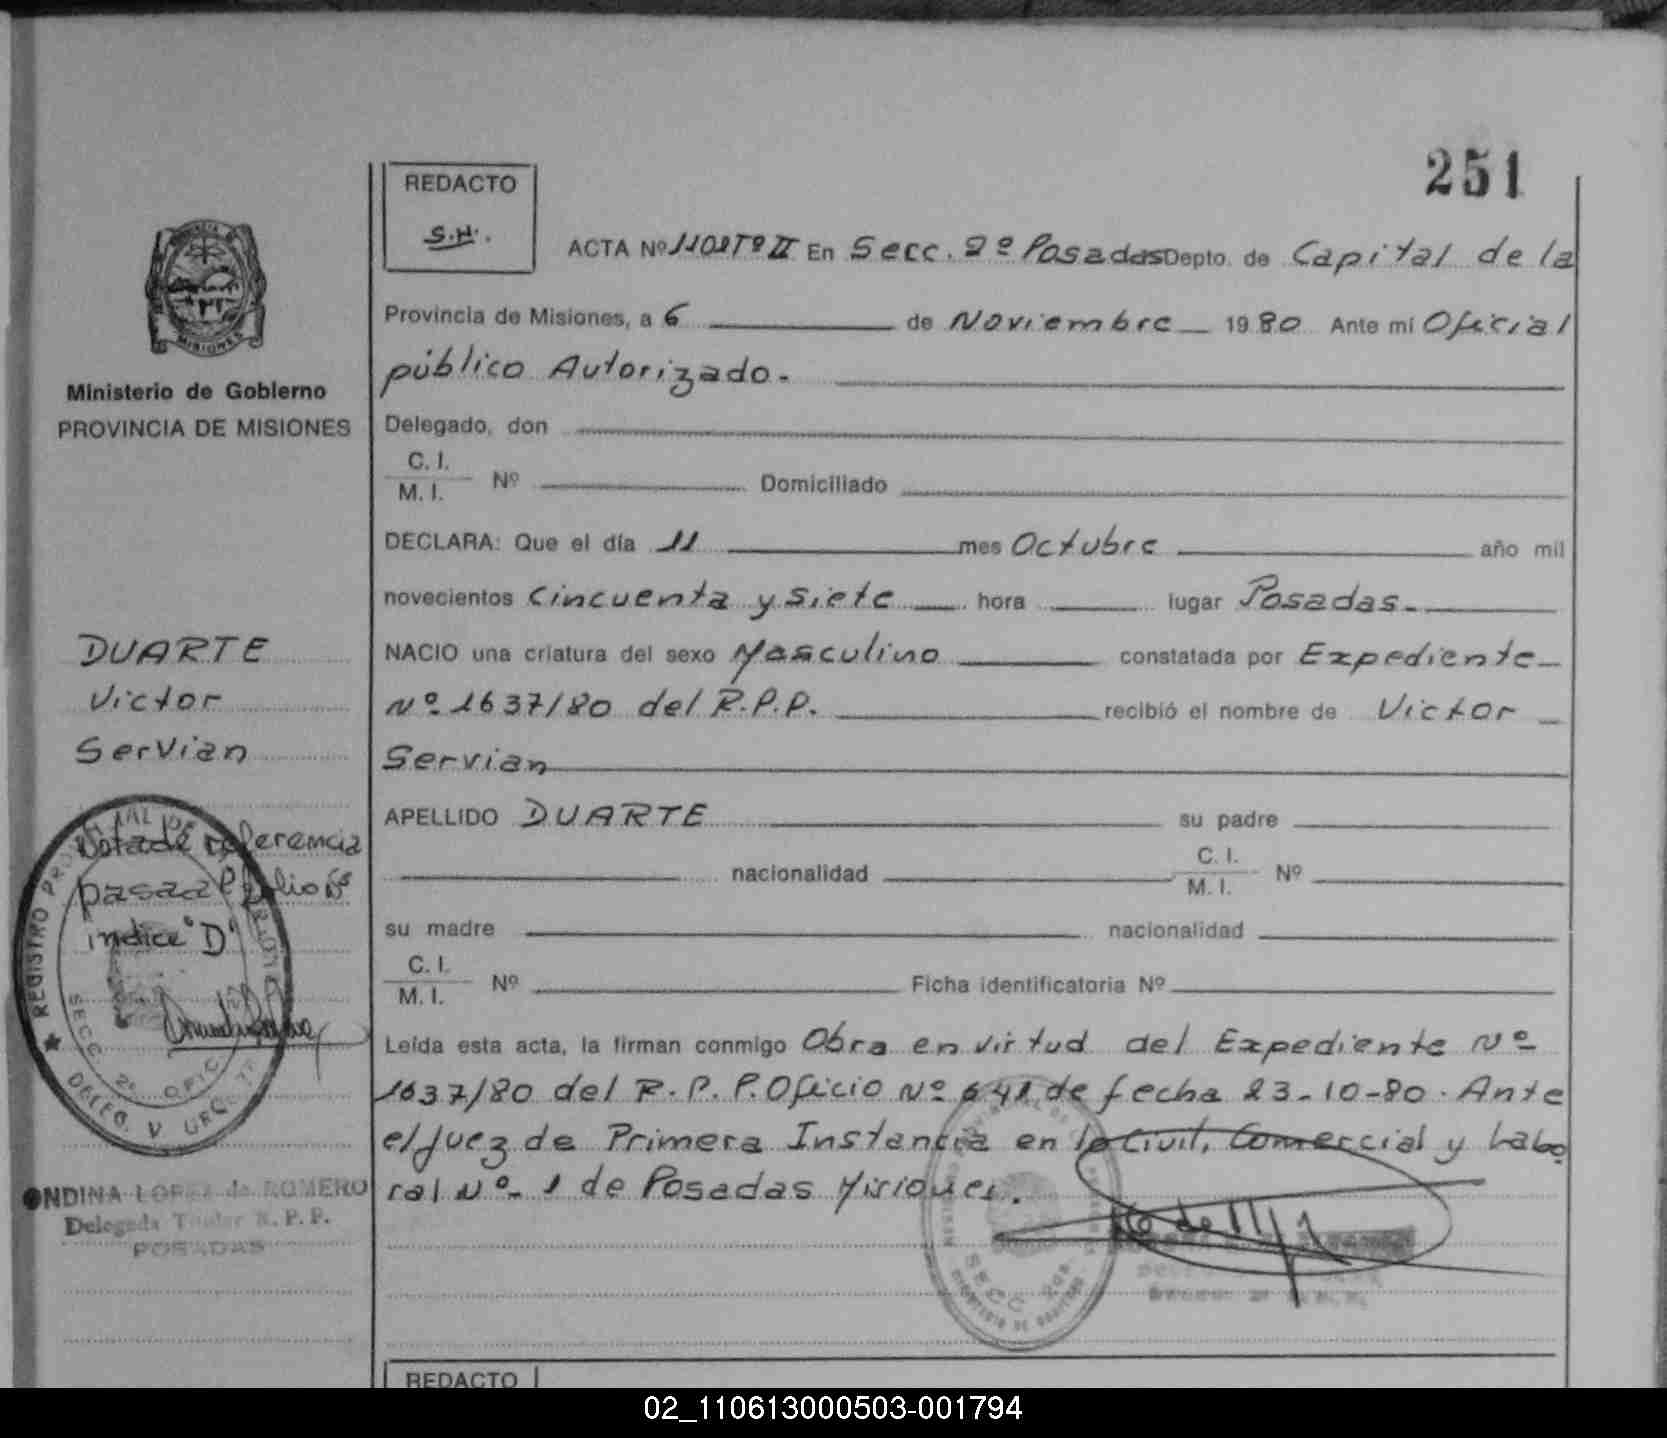 251
REDACTO
S.H.
ACTA Nº 1101Tº II En Secc. 2º Posadas Depto. de Capital de la
Provincia de Misiones, a 6 de Noviembre 1980 Ante mi Oficial
público Autorizado.
Delegado, don
C. I.
M. I. Nº Domiciliado
DECLARA: Que el día 11 mes Octubre año mil
novecientos Cincuenta y Siete hora lugar Posadas.
NACIO una criatura del sexo Masculino constatada por Expediente
Nº 1637/80 del R.P.P. recibió el nombre de Victor
Servian
APELLIDO DUARTE su padre
nacionalidad C. I.
M. I. Nº
su madre nacionalidad
C. I.
M. I. Nº Ficha identificatoria Nº
Leída esta acta, la firman conmigo Obra en virtud del Expediente Nº
1637/80 del R.P.P. Oficio Nº 641 de fecha 23-10-80. Ante
el juez de Primera Instancia en lo Civil, Comercial y Labo
ral Nº 1 de Posadas Misiones.
SECC
MISIONES
Ministerio de Gobierno
PROVINCIA DE MISIONES
DUARTE
Victor
Servian
Nota de referencia
pasada folio
indice "D"
REGISTRO
SECC 2ª OFIC
DELEG. V URQ
ONDINA LOPEZ de ROMERO
Delegada Titular R. P. P.
POSADAS
REDACTO
02_110613000503-001794